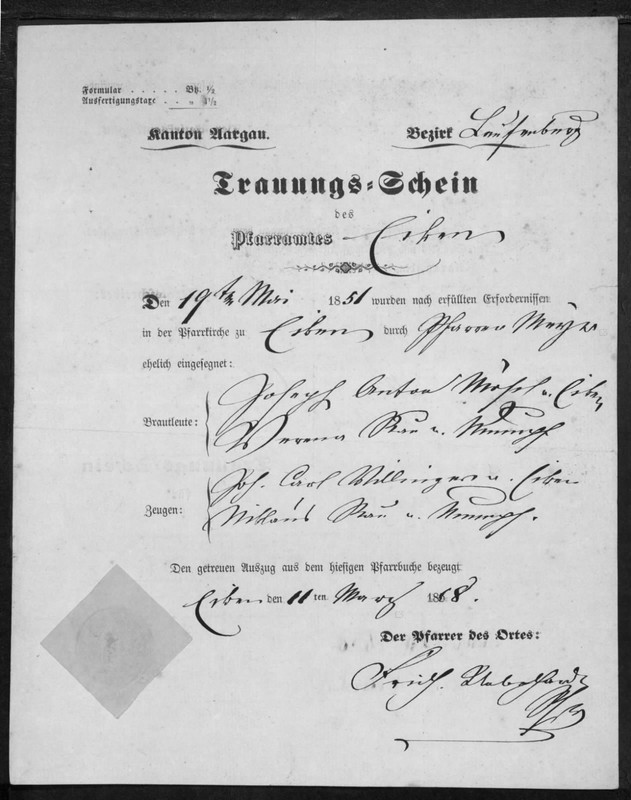 Formular . . . . . Btz. ½
Ausfertigungstaxe . . „ 1½
Kanton Aargau.
Bezirk Laufenburg
Trauungs-Schein
des
Pfarramtes Eiken
Den 19ten Mai 1851 wurden nach erfüllten Erfordernissen
in der Pfarrkirche zu Eiken durch Pfarrer Meyer
ehelich eingesegnet:
Brautleute:
Joseph Anton v. Eiken
Verena Rau v. Mumpf
Zeugen:
Joh. Carl Villinger v. Eiken
Niklaus Rau v. Mumpf.
Den getreuen Auszug aus dem hiesigen Pfarrbuche bezeugt
Eiken den 11ten März 1868.
Der Pfarrer des Ortes:
Fridl.